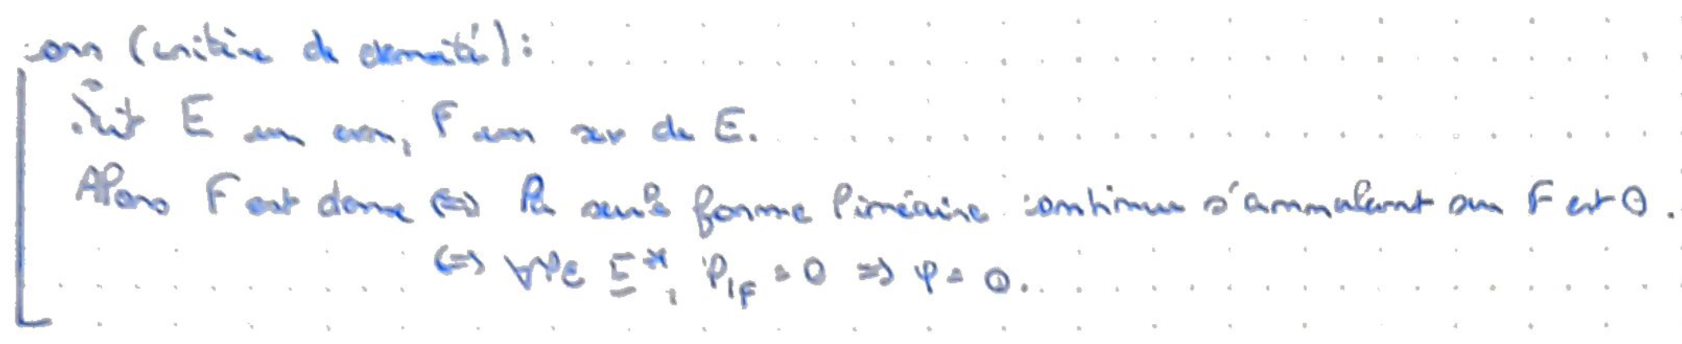 Coro (critère de densité) :
Soit E un evn, F un sev de E.
Alors F est dense <=> la seule forme linéaire continue s'annulant sur F est 0.
<=> ∀φ∈ E*, φ|F = 0 => φ = 0.